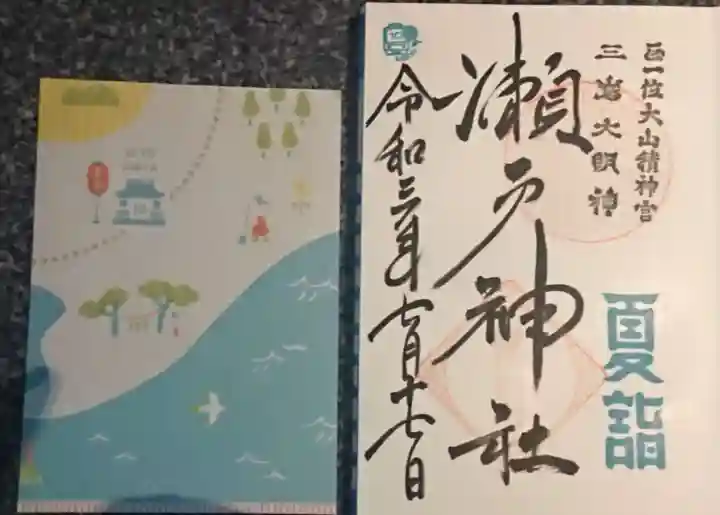 正一位大山積神宮
三嶋大明神
夏詣
瀬戸神社
令和三年七月十七日